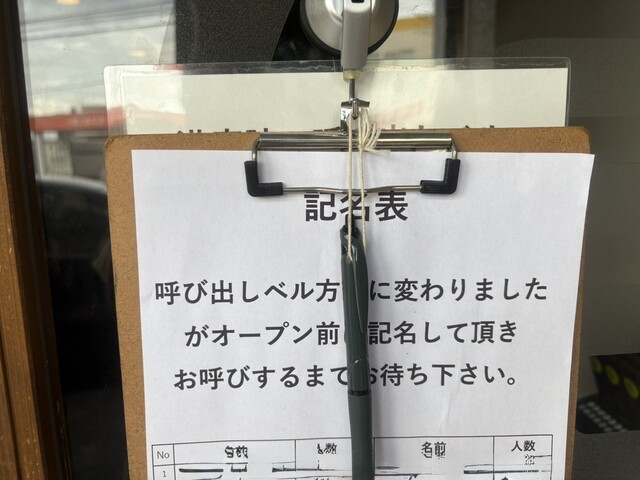 記名表
呼び出しベル方 に変わりました
がオープン前 記名して頂き
お呼びするまでお待ち下さい。
No 名前 人数 名前 人数
1